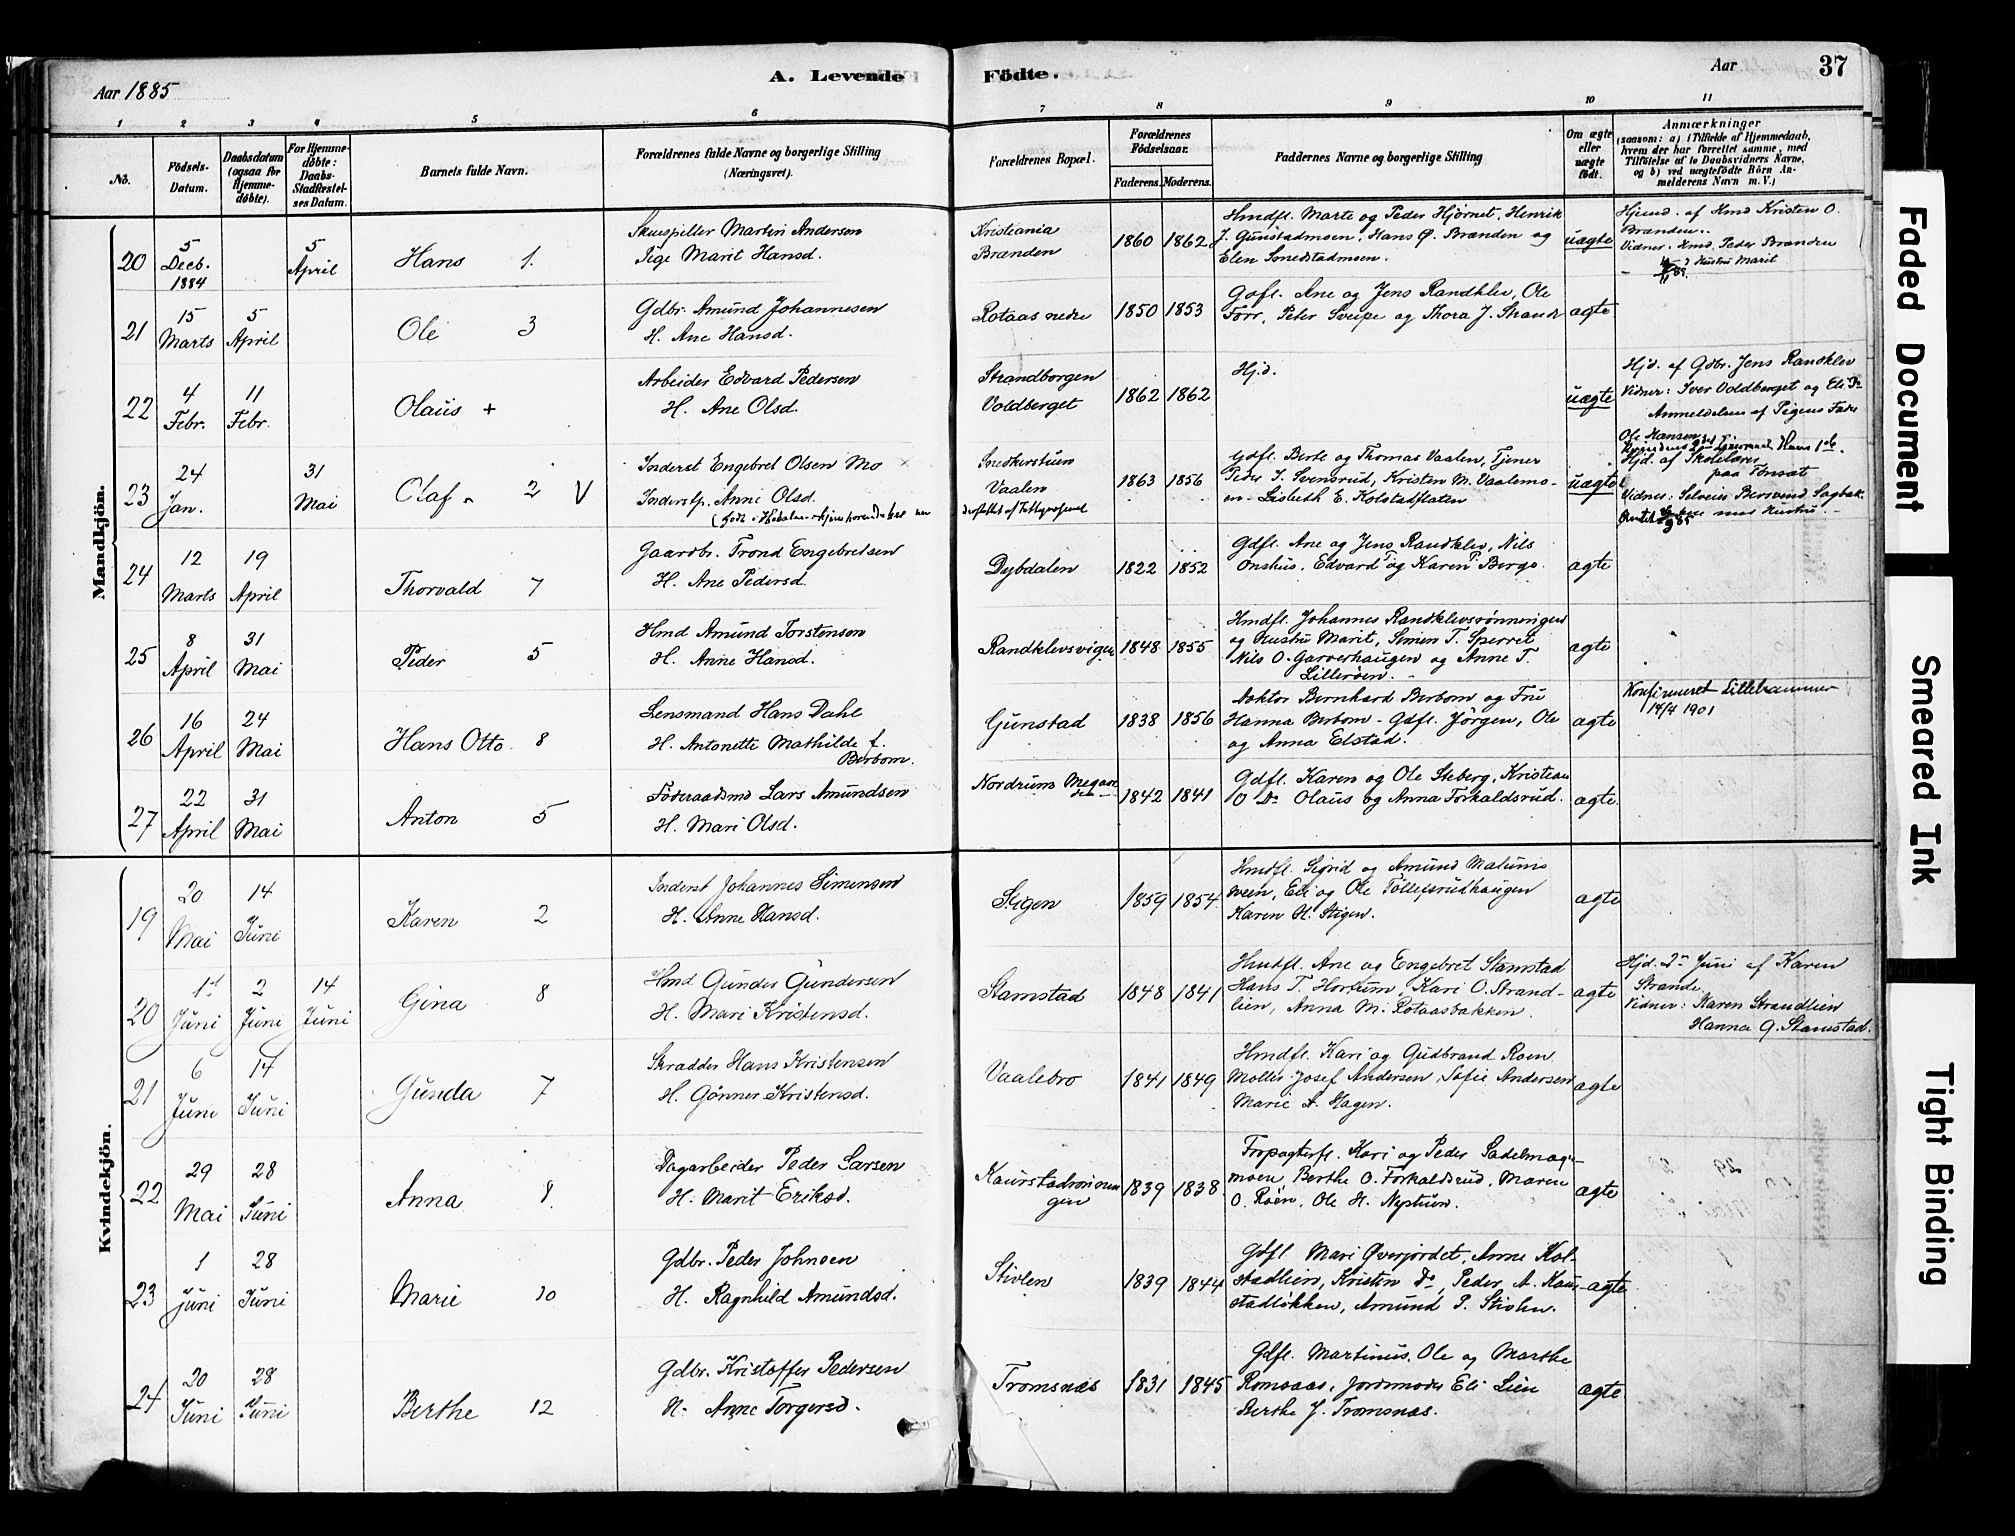 Aar 1885
A. Levende Födte.
Aar
37
1 2 3 4 5 6 7 8 9 10 11
No.
Födsels-Datum.
Daabsdatum (ogsaa for Hjemme-döbte).
For Hjemme-döbte: Daabs-Stadfæstel-ses Datum.
Barnets fulde Navn.
Forældrenes fulde Navne og borgerlige Stilling (Næringsvei).
Forældrenes Bopæl.
Forældrenes Födselsaar.
Faderens. Moderens.
Faddernes Navne og borgerlige Stilling
Om ægte eller uægte födt.
Anmærkninger
(saasom: a) i Tilfælde af Hjemmedaab,
hvem der har forrettet samme, med
Tilföielse af to Daabsvidners Navne,
og b) ved uægtefödte Börn An-
melderens Navn m. V.)
Mandkjön.
20
5 Decb. 1884
5 April
Hans 1.
Skuespiller Martin Andersen
Pige Marit Hansd.
Kristiania
Brænden
1860 1862
Hmdfl. Marte og Peder Hjørnet, Henrik
J. Gunstadmoen, Hans Ø. Brænden og
Elen Smedstadmoen.
uægte
Hjemd. af Hmd Kristen O.
Brænden.
Vidner: Hmd. Peder Brænden
Hustru Marit
21
15 Marts
5 April
Ole 3
Gdbr. Amund Johannesen
H. Ane Hansd.
Rotaas nedre
1850 1853
Gdfl. Ane og Jens Randklev, Ole
Forr, Peter Sveipe og Thora J. Strande
ægte
22
4 Febr.
11 Febr.
Olaus +
Arbeider Edvard Pedersen
H. Ane Olsd.
Strandborgen
Voldberget
1862 1862
Hjd.
uægte
Hjd. af Gdbr. Jens Randklev
Vidner: Iver Voldberget og Eli Do
Anmeldelsen af Pigens Fader
Ole Hansen
23
24 Jan.
31 Mai
Olaf 2 V
Inderst Engebret Olsen Mo
Inderstp. Anne Olsd.
Snedkerstuen
Vaalen
1863 1856
Gdfl. Berte og Thomas Vaalen, Tjener
Peder S. Svensrud, Kristen M. Vaalemo-
en - Lisbeth E. Kolstadflaten
uægte
Hjd. af Skolelærer
paa Tonsæt
Vidner: Selveier Bersvend Sagbak
med Hustru.
24
12 Marts
19 April
Thorvald 7
Gaardbr. Trond Engebretsen
H. Ane Pedersd.
Dybdalen
1822 1852
Gdfl. Ane og Jens Randklev, Nils
Onshus, Edvard og Karen P. Berge.
ægte
25
8 April
31 Mai
Peder 5
Hmd Amund Torstensen
H. Anne Hansd.
Randklevsvigen
1848 1855
Hmdfl. Johannes Randklevsrønningen
og Hustru Marit, Simen T. Sperret
Nils O. Garverhaugen og Anne T.
Lillerøen.
ægte
26
16 April
24 Mai
Hans Otto 8
Lensmand Hans Dahl
H. Antonette Mathilde f.
Berbom.
Gunstad
1838 1856
Doktor Bernhard Berbom og Frue
Hanna Berbom - Gdfl. Jörgen, Ole
og Anna Elstad.
ægte
Konfirmeret Lillehammer
14/4 1901
27
22 April
31 Mai
Anton 5
Föderaadsmd Lars Amundsen
H. Mari Olsd.
Nordrum
1842 1841
Gdfl. Karen og Ole Steberg, Kristian
O Do Olaus og Anna Forkaldsrud.
ægte
Kvindekjön.
19
20 Mai
14 Juni
Karen 2
Inderst Johannes Simensen
H. Anne Hansd.
Stigen
1859 1854
Hmdfl. Sigrid og Amund Malums
veen, Eli og Ole Tollefsrudhaugen
Karen H. Stigen.
ægte
20
1st Juni
2 Juni
14 Juni
Gina 8
Hmd Gunder Gundersen
H. Mari Kristensd.
Stamstad
1848 1841
Hmdfl. Ane og Engebret Stamstad
Hans T. Hortum, Kari O. Strand-
lien, Anna M. Rotaasbakken.
ægte
Hjd. 2n Juni af Karen
Strande
Vidner: Karen Strandlien
Hanna G. Stamstad.
21
6 Juni
14 Juni
Gunda 7
Skrædder Hans Kristensen
H. Gönner Kristensd.
Vaalebro
1841 1849
Hmdfl. Kari og Gudbrand Roen
Møller Josef Andersen, Sofie Andersen
Marie A. Hagen.
ægte
22
29 Mai
28 Juni
Anna 8
Dagarbeider Peder Larsen
H. Marit Eriksd.
Kaurstadrønnin
gen
1839 1838
Forpagterfl. Kari og Peder Sadelmager-
moen, Berthe O. Forkaldsrud, Maren
O. Röen, Ole H. Neptun.
ægte
23
1 Juni
28 Juni
Marie 10
Gdbr. Peder Johnsen
H. Ragnhild Amundsd.
Stivlen
1839 1844
Gdfl. Mari Øverjordet, Anne Kol-
stadlien, Kristen Do, Peder A. Kaur-
stadløkken, Amund P. Stivlen.
ægte
24
20 Juni
28 Juni
Berthe 12
Gdbr. Kristoffer Pedersen
H. Anne Torgersd.
Tromsnæs
1831 1845
Gdfl. Martinus, Ole og Marthe
Romsaas, Jordmoder Eli Lien
Berthe J. Tromsnæs.
ægte
Faded Document
Smeared Ink
Tight Binding